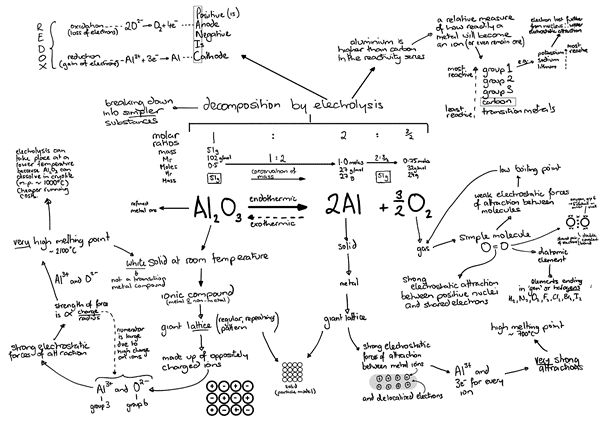 REDOX
oxidation
(loss of electrons)
2O²⁻ → O₂ + 4e⁻
reduction
(gain of electrons)
Al³⁺ + 3e⁻ → Al
Positive (is)
Anode
Negative
Is
Cathode
aluminium is
higher than carbon
in the reactivity series
a relative measure
of how readily a
metal will become
an ion (or even remain one)
electron lost further
from nucleus: weaker
electrostatic attraction
most
reactive
group 1
group 2
group 3
carbon
transition metals
least
reactive
e.g.
potassium
sodium
lithium
most
reactive
breaking down
into simpler
substances
decomposition by electrolysis
molar
ratios
1 : 2 : 3/2
mass
Mr
Moles
Mr
Mass
51g
102 g/mol
0.5
51g
1:2
conservation of
mass
1.0 mols
27 g/mol
27g
2:3/2
51g
0.75 mols
32 g/mol
24g
electrolysis can
take place at a
lower temperature
because Al₂O₃ can
dissolve in cryolite
(m.p. ~ 1000°C)
Cheaper running
costs
refined
metal ore
Al₂O₃
endothermic
exothermic
2Al + 3/2 O₂
very high melting point
~ 2100°C
White solid at room temperature
not a transition
metal compound
ionic compound
(metal & non-metal)
giant lattice
(regular, repeating
pattern)
made up of oppositely
charged ions
Al³⁺ and O²⁻
strength of force
is α charge
radius
numerator
is large
due to
high charge
on ions
strong electrostatic
forces of attraction
Al³⁺ and O²⁻
group 3
group 6
solid
(particle model)
solid
metal
giant lattice
strong electrostatic
forces of attraction
between metal ions
and delocalised electrons
Al³⁺ and
3e⁻ for every
ion
very strong
attractions
high melting point
~ 700°C
gas
low boiling point
weak electrostatic forces
of attraction between
molecules
simple molecule
O=O
diatomic
element
elements ending
in 'gen' or halogens
H₂, N₂, O₂, F₂, Cl₂, Br₂, I₂
Strong
electrostatic attraction
between positive nuclei
and shared electrons